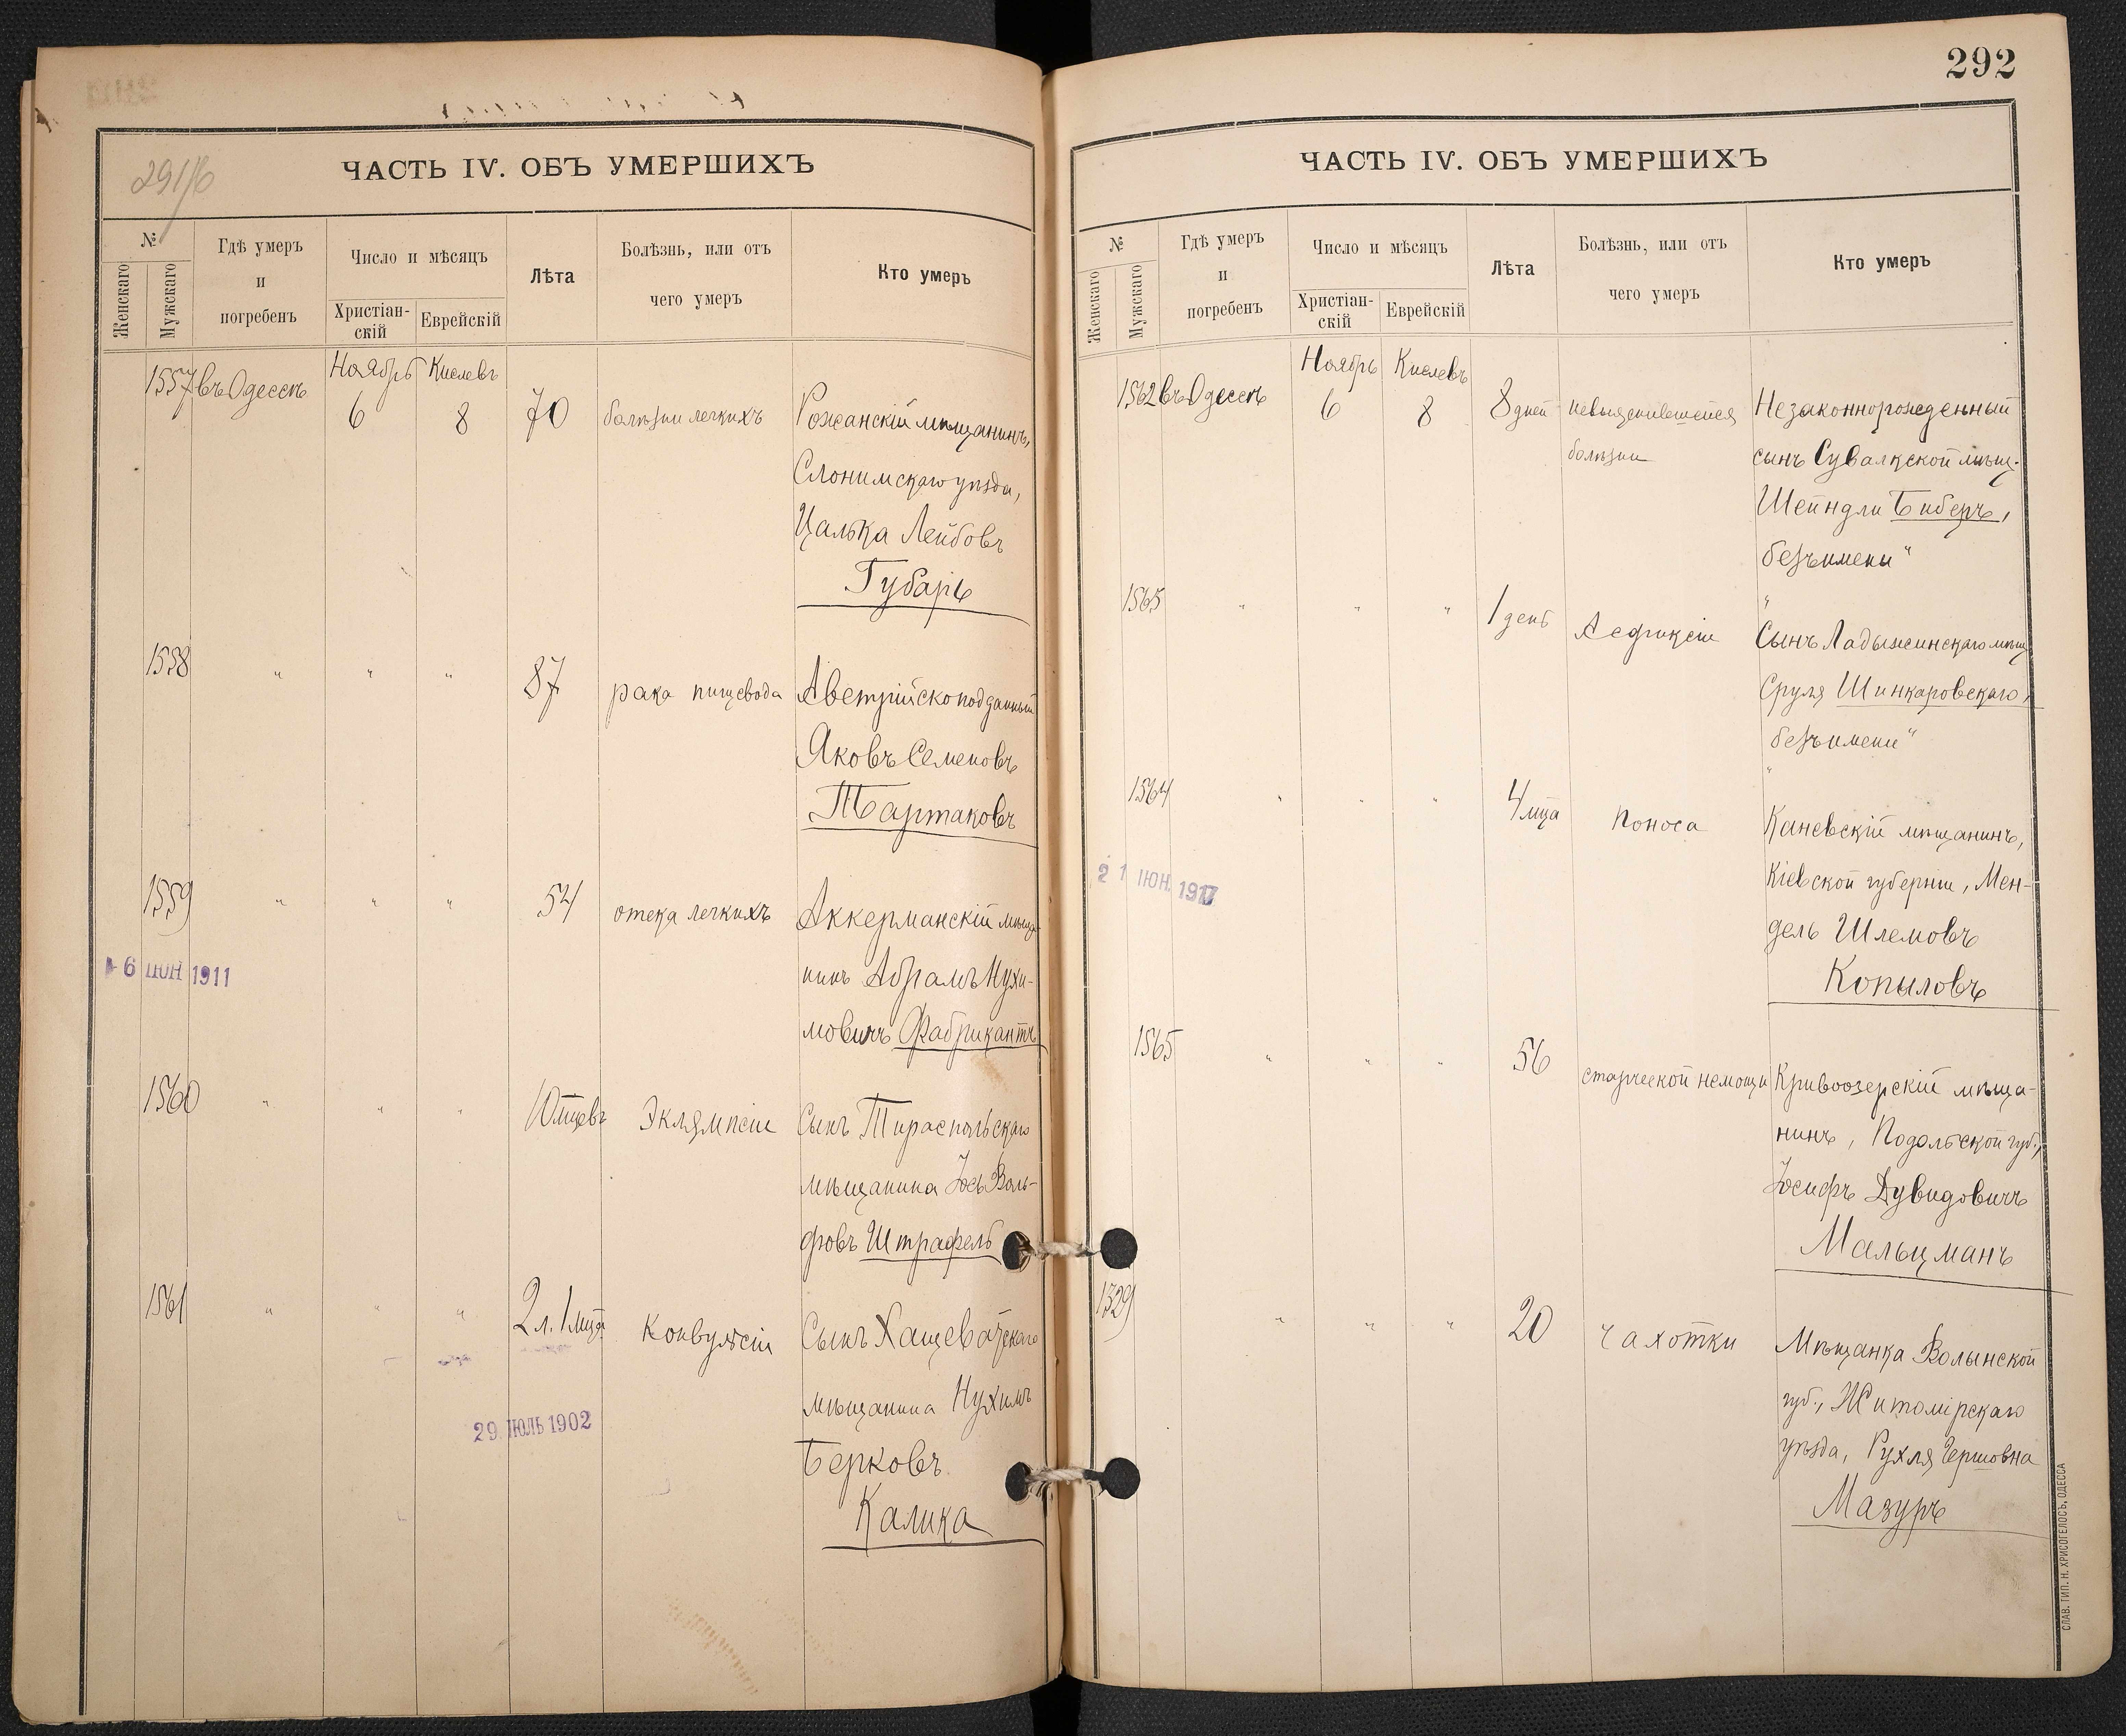 291/об
ЧАСТЬ IV. ОБЪ УМЕРШИХЪ
№
Женскаго
Мужскаго
Гдѣ умеръ
и
погребенъ
Число и мѣсяцъ
Христіан-
скій
Еврейскій
Лѣта
Болѣзнь, или отъ
чего умеръ
Кто умеръ
1557 въ Одессѣ Ноябрь Кислевъ
6 8 70 болѣзни легкихъ Рожанскій мѣщанинъ,
Слонимскаго уѣзда,
Цалька Лейбовъ
Губарь
1558 " " " 87 рака пищевода Австрійскоподданный
Яковъ Семеновъ
Тартаковъ
1559 " " " 54 отека легкихъ Аккерманскій мѣща-
нинъ Абрамъ Нухи-
мовичъ Фабрикантъ
6 ІЮН 1911
1560 " " " 10 мцевъ Эклямпсіи Сынъ Тираспольскаго
мѣщанина Іось Воль-
фовъ Штрафель
1561 " " " 2 л. 1 мца Конвульсіи Сынъ Хащеватскаго
мѣщанина Нухимъ
Берковъ
Калика
29 ІЮЛЬ 1902
292
ЧАСТЬ IV. ОБЪ УМЕРШИХЪ
№
Женскаго
Мужскаго
Гдѣ умеръ
и
погребенъ
Число и мѣсяцъ
Христіан-
скій
Еврейскій
Лѣта
Болѣзнь, или отъ
чего умеръ
Кто умеръ
1562 въ Одессѣ Ноябрь Кислевъ
6 8 8 дней невыяснившейся Незаконнорожденный
болѣзни сынъ Сувалкской мѣщ.
Шейндли Биберъ,
"безъ имени"
1563 " " " 1 день Асфиксіи Сынъ Ладыжинскаго мѣщ.
Сруля Шинкаровскаго,
"безъ имени"
1564 " " " 4 мца Поноса Каневскій мѣщанинъ,
Кіевской губерніи, Мен-
дель Шлемовъ
Копыловъ
21 ІЮН. 1917
1565 " " " 56 старческой немощи Кривоозерскій мѣща-
нинъ, Подольской губ.,
Іосифъ Дувидовичъ
Мальцманъ
1329 " " " 20 чахотки Мѣщанка Волынской
губ., Житомірскаго
уѣзда, Рухля Гершовна
Мазуръ
СЛАВ. ТИП. Н. ХРИСОГЕЛОСЪ, ОДЕССА